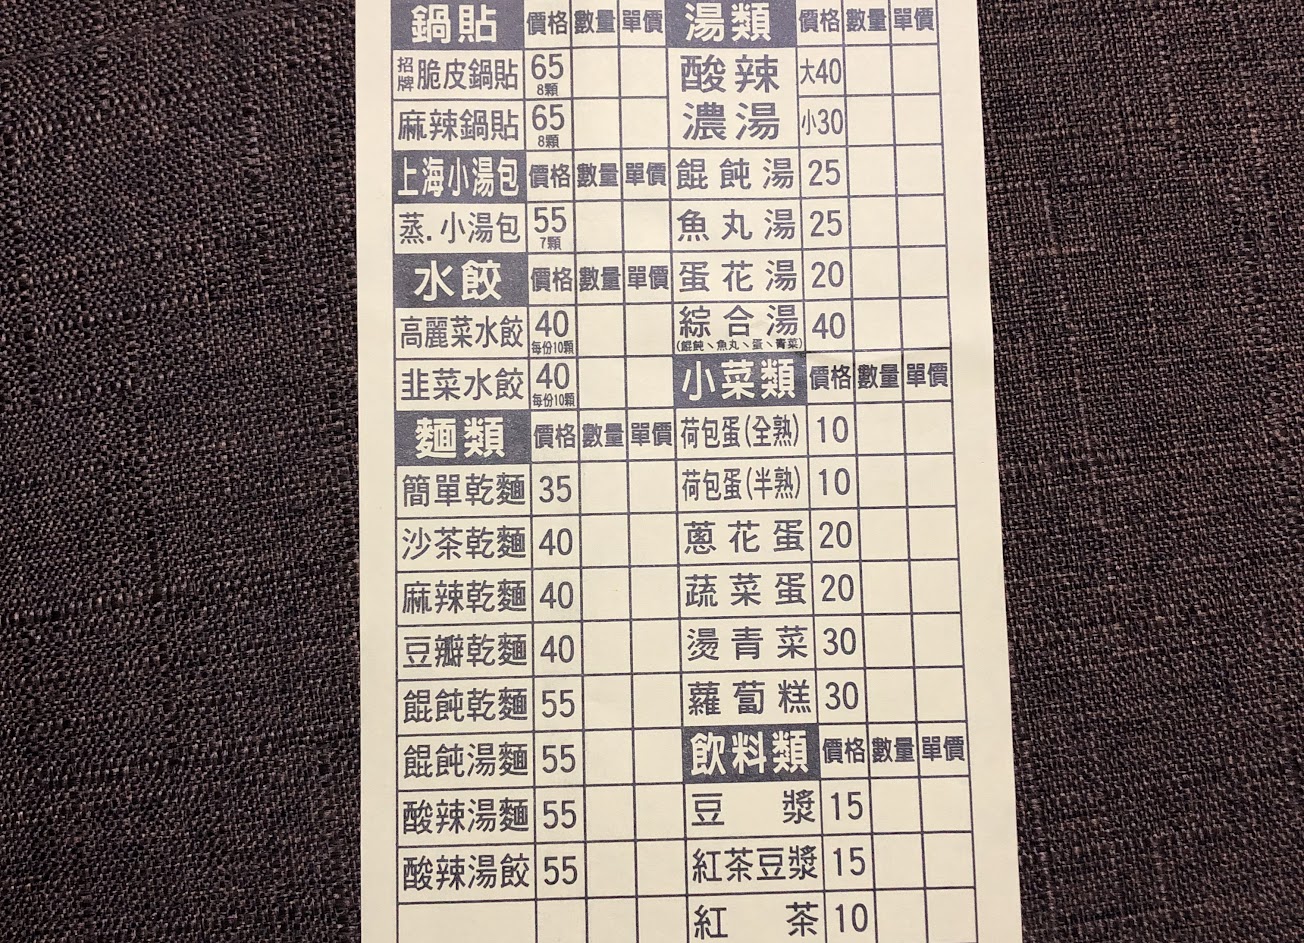 鍋貼 價格 數量 單價
招牌 脆皮鍋貼 65 8顆
麻辣鍋貼 65 8顆
上海小湯包 價格 數量 單價
蒸.小湯包 55 7顆
水餃 價格 數量 單價
高麗菜水餃 40 每份10顆
韭菜水餃 40 每份10顆
麵類 價格 數量 單價
簡單乾麵 35
沙茶乾麵 40
麻辣乾麵 40
豆瓣乾麵 40
餛飩乾麵 55
餛飩湯麵 55
酸辣湯麵 55
酸辣湯餃 55
湯類 價格 數量 單價
酸辣 大40
濃湯 小30
餛飩湯 25
魚丸湯 25
蛋花湯 20
綜合湯 40
(餛飩、魚丸、蛋、青菜)
小菜類 價格 數量 單價
荷包蛋(全熟) 10
荷包蛋(半熟) 10
蔥花蛋 20
蔬菜蛋 20
燙青菜 30
蘿蔔糕 30
飲料類 價格 數量 單價
豆漿 15
紅茶豆漿 15
紅茶 10